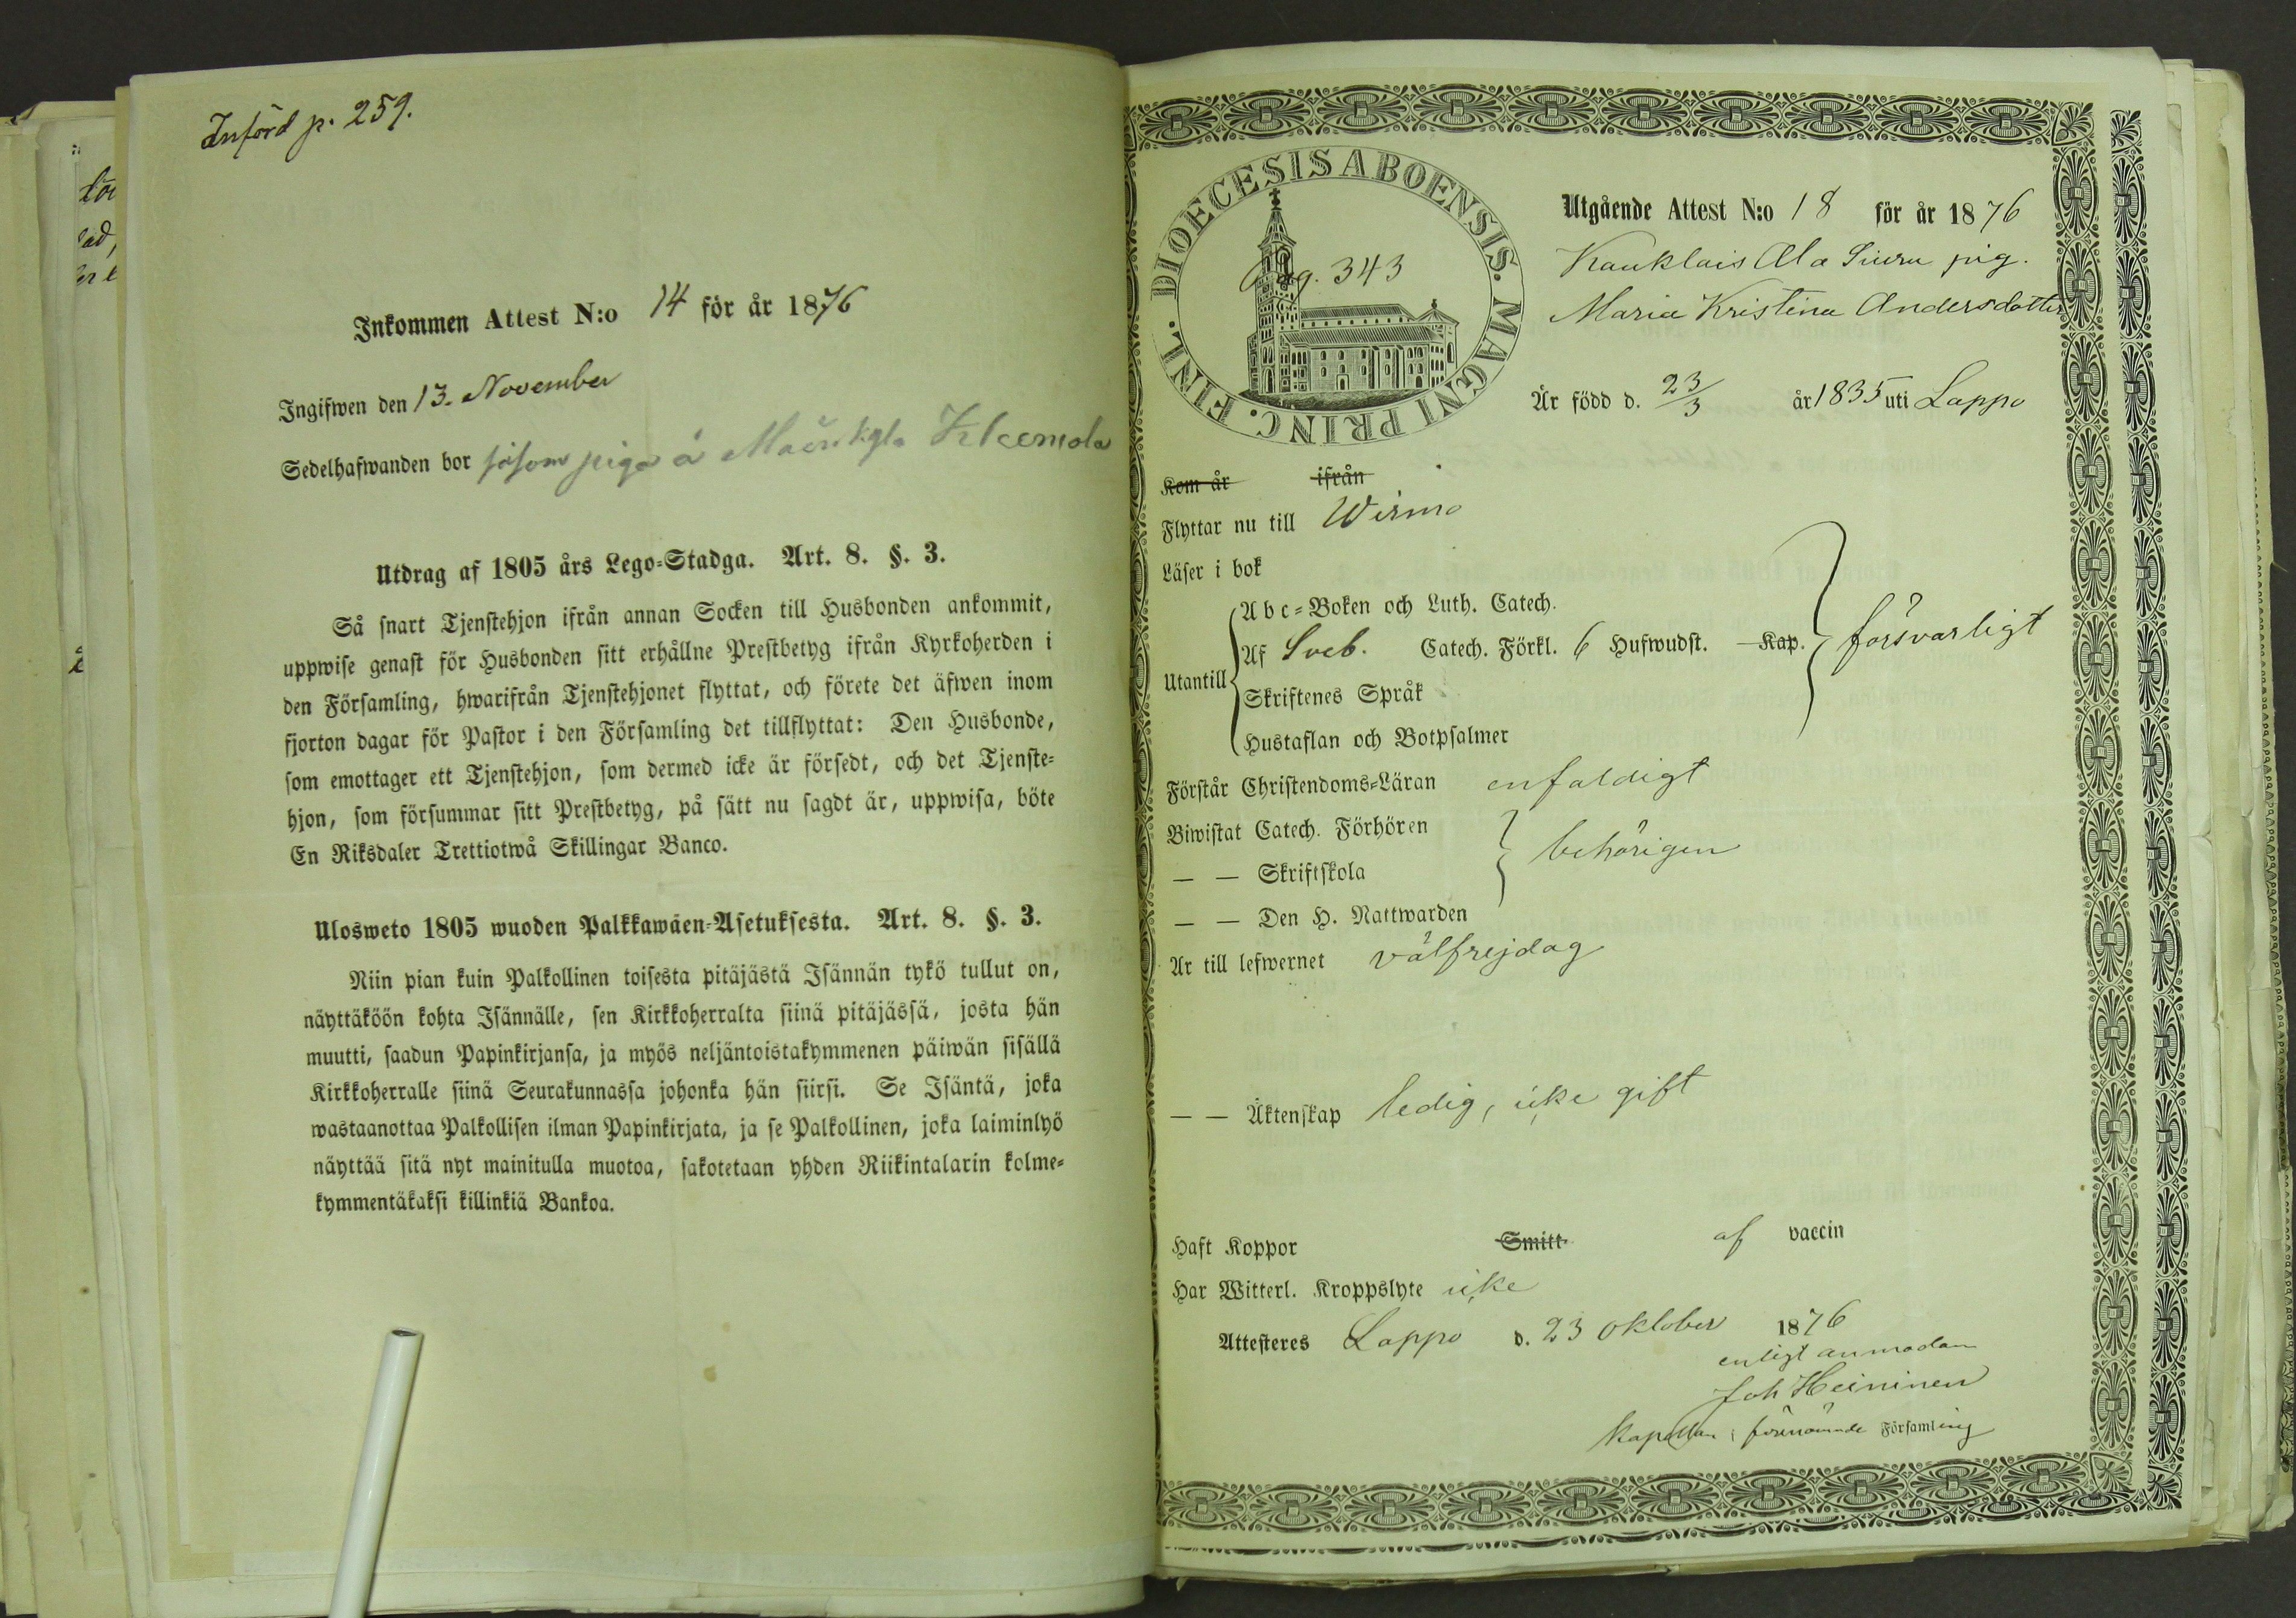 Införd p. 259.
Inkommen Attest N:o 14 för år 1876
Ingifwen den 13. November
Sedelhafwanden bor såsom piga å Kleemola
Utdrag af 1805 års Lego-Stadga. Art. 8. §. 3.
Så snart Tjenstehjon ifrån annan Socken till Husbonden ankommit,
uppwise genast för Husbonden sitt erhållne Prestbetyg ifrån Kyrkoherden i
den Församling, hwarifrån Tjenstehjonet flyttat, och förete det äfwen inom
fjorton dagar för Pastor i den Församling det tillflyttat: Den Husbonde,
som emottager ett Tjenstehjon, som dermed icke är försedt, och det Tjenste-
hjon, som försummar sitt Prestbetyg, på sätt nu sagdt är, uppwisa, böte
En Riksdaler Trettiotwå Skillingar Banco.
Ulosweto 1805 wuoden Palkkawäen-Asetuksesta. Art. 8. §. 3.
Niin pian kuin Palkollinen toisesta pitäjästä Isännän tykö tullut on,
näyttäköön kohta Isännälle, sen Kirkkoherralta siinä pitäjässä, josta hän
muutti, saadun Papinkirjansa, ja myös neljäntoistakymmenen päiwän sisällä
Kirkkoherralle siinä Seurakunnassa johonka hän siirsi. Se Isäntä, joka
wastaanottaa Palkollisen ilman Papinkirjata, ja se Palkollinen, joka laiminlyö
näyttää sitä nyt mainitulla muotoa, sakotetaan yhden Riikintalarin kolme-
kymmentäkaksi killinkiä Bankoa.
DIOECESIS ABOENSIS. MAGNI PRINC. FINL.
Pag. 343
Utgående Attest N:o 18 för år 1876
Kauklais Ala Siuru pig.
Maria Kristina Andersdotter
Är född d. 23/3 år 1835 uti Lappo
Kom år ifrån
Flyttar nu till Wirmo
Läser i bok
Utantill
Abc-Boken och Luth. Catech.
Af Sveb. Catech. Förkl. 6 Hufwudst. Kap. försvarligt
Skriftenes Språk
Hustaflan och Botpsalmer
Förstår Christendoms-Läran enfaldigt
Biwistat Catech. Förhören
— — Skriftskola behörigen
— — Den H. Nattwarden
Är till lefwernet välfrejdag
— — Äktenskap ledig, icke gift
Haft Koppor Smitt af vaccin
Har Witterl. Kroppslyte icke
Attesteres Lappo d. 23 Oktober 1876
enligt anmodan
Joh Heininen
Kapellan i förenämnde Församling